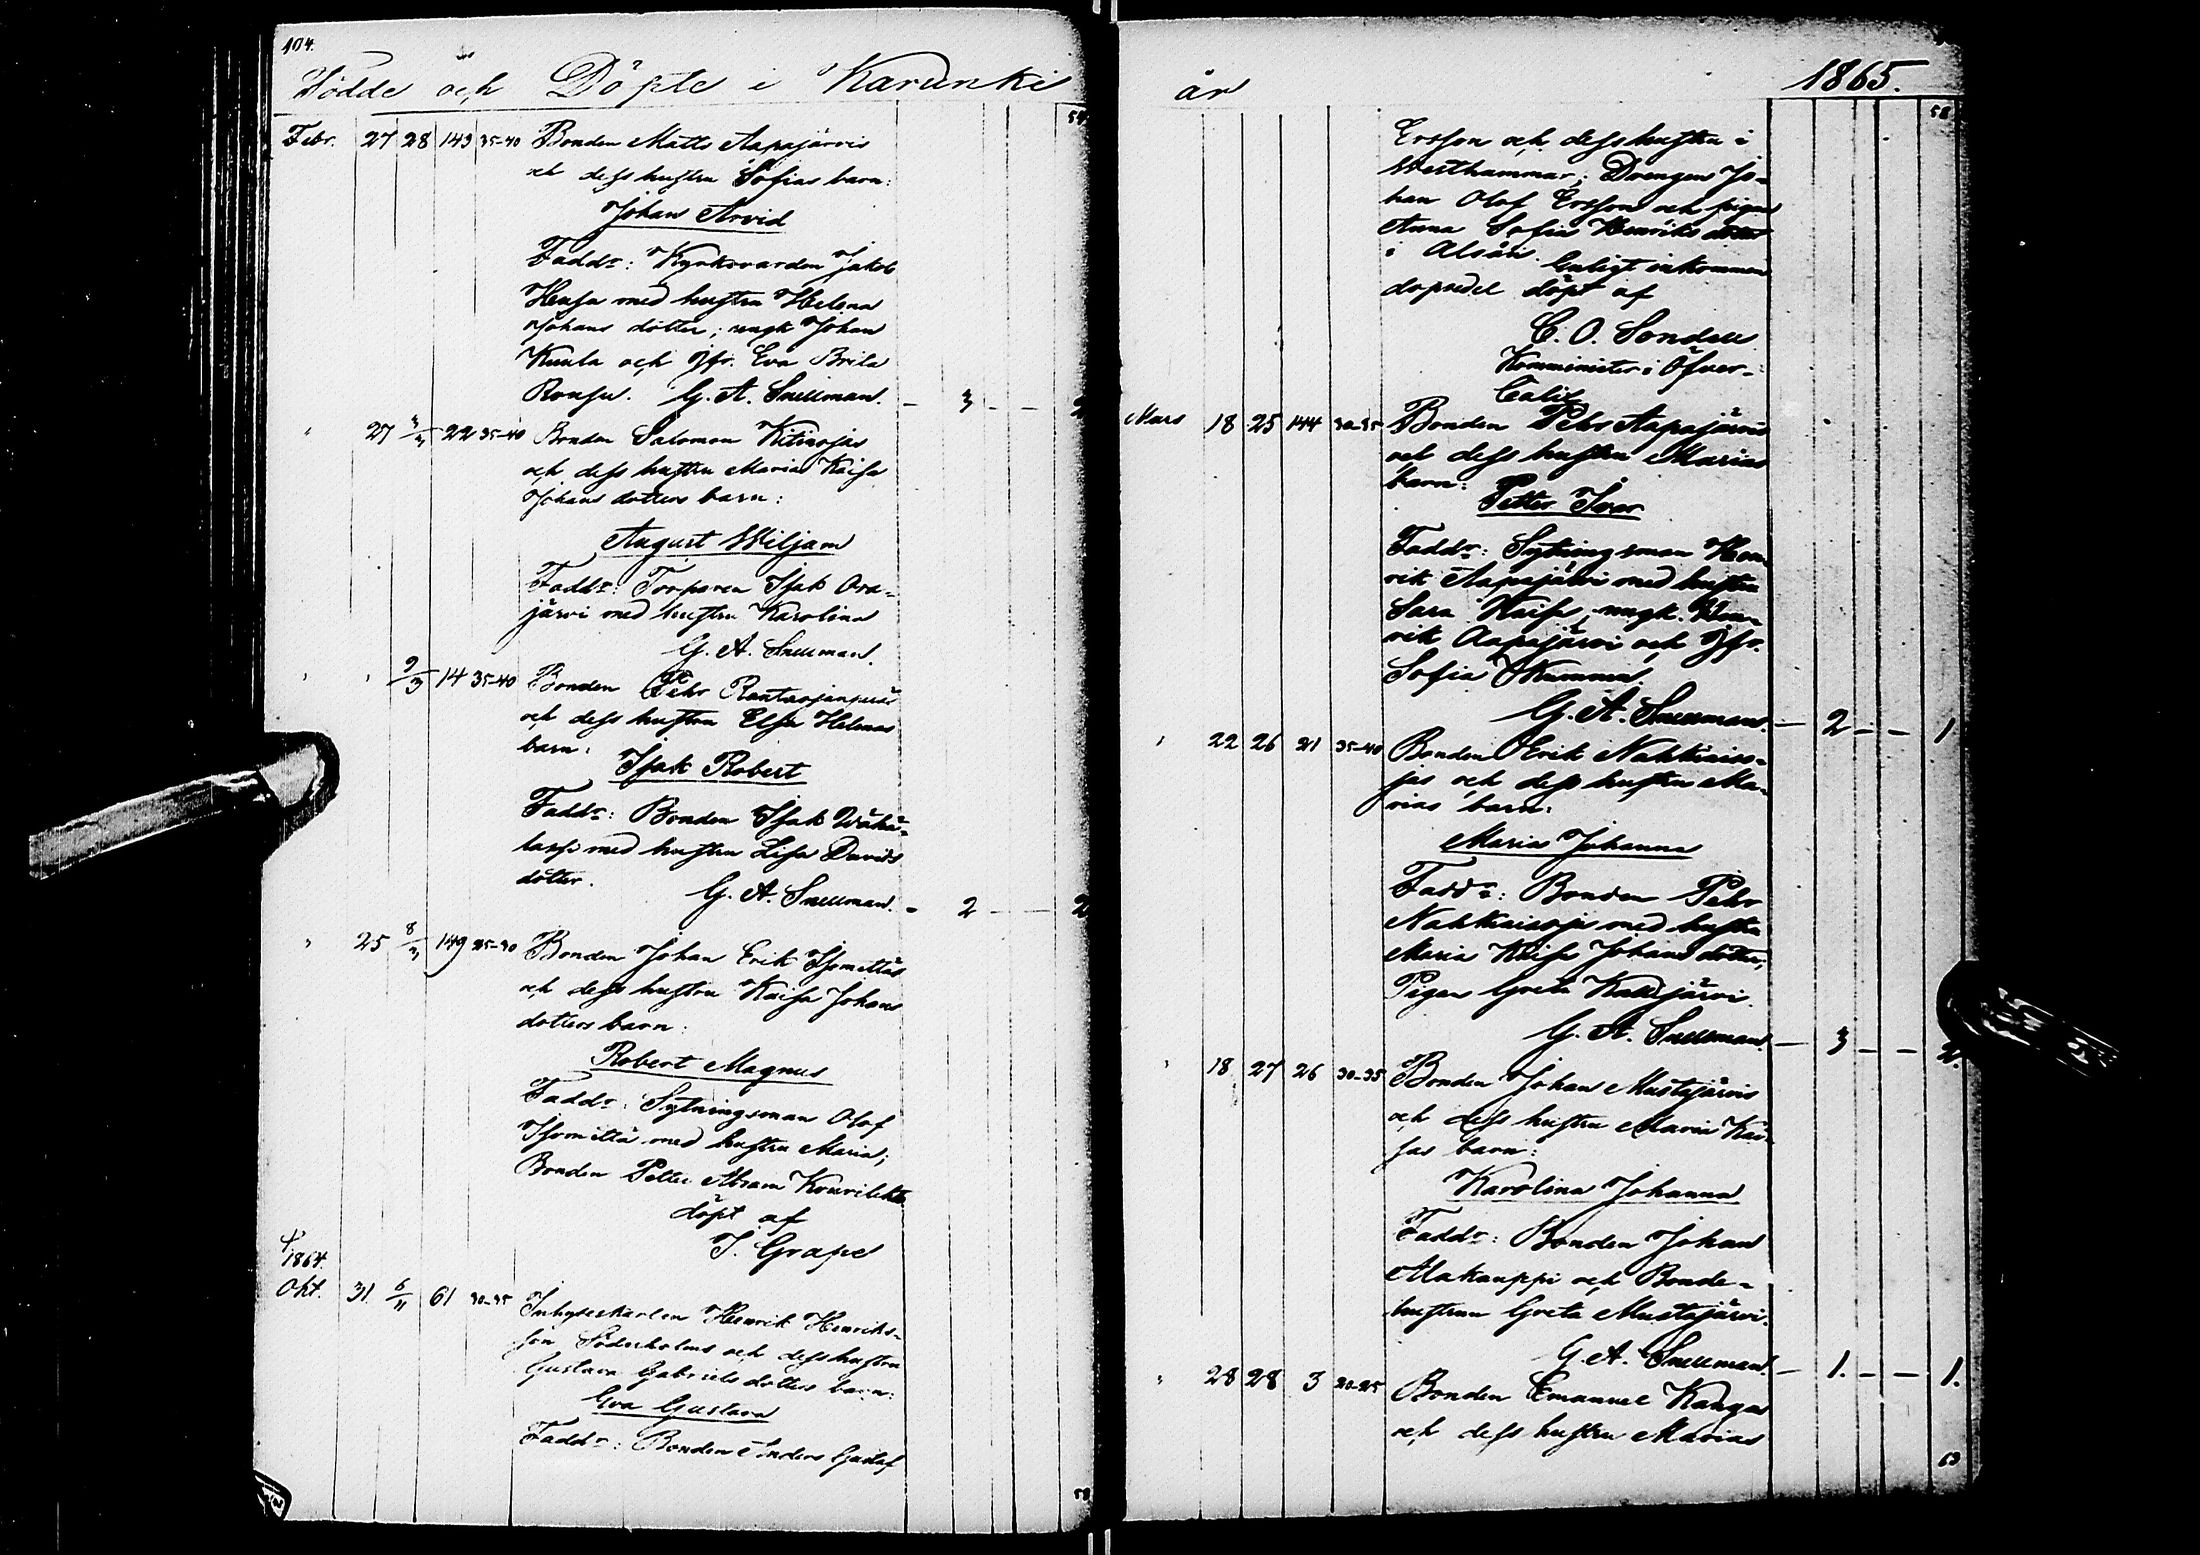 104.
Födde och Döpte i Karunki
54
Febr. 27 28 143 35-40 Bonden Matts Aapajärvis
och dess hustru Sofias barn:
Johan Arvid
Faddr: Kyrkovarden Jakob
med hustru Helena
Johans dotter; ungk Johan
och Jfr. Eva Brita
G. A. Snellman. - 3 - - 2
" 27 22 35-40 Bonden Salomon
och dess hustru Maria Kaisa
Johans dotters barn:
August Wiljam
Faddr: Torparen Isak Ora-
järvi med hustru Karolina
G. A. Snellman.
" " 9/3 14 35-40 Bonden Pehr
och dess hustru Elsa Helenas
barn:
Isak Robert
Faddr: Bonden Isak
med hustru Lisa Davids
dotter.
G. A. Snellman. - 2 - - 2
" 25 8/3 149 25-30 Bonden Johan Erik Isomettäs
och dess hustru Kaisa Johans
dotters barn:
Robert Magnus
Faddr: Sytningsman Olof
Isomettä med hustru Maria;
Bonden Petter Abram
döpt af
J. Grape
1864.
Okt. 31 6/11 61 30-35 Inhyseskarlen Henrik Henriks-
son Söderholms och dess hustru
Gustava Gabriels dotters barn:
Eva Gustava
Faddr: Bonden Anders Gustaf
58
år 1865.
58
Ersson och dess hustru i
Westhammar; Drengen Jo-
han Olof Ersson och pigan
Anna Sofia Henriks dotter
i Alsån. Enligt inkommen
dopsedel döpt af
C. O. Sondell
Komminister i Öfver-
Calix
Mars 18 25 144 30-35 Bonden Pehr Aapajärvis
och dess hustru Marias
barn:
Petter Ivar
Faddr: Sytningsman Hen-
rik Aapajärvi med hustru
Sara Kaisa, ungk. Hen-
rik Aapajärvi och Jfr.
Sofia Kummu.
G. A. Snellman. - 2 - - 1
" 22 26 21 35-40 Bonden Erik Nahkiaiso-
jas och dess hustru Ma-
rias barn:
Maria Johanna
Faddr: Bonden Pehr
Nahkiaisoja med hustru
Maria Kaisa Johans dotter;
Pigan Greta Kallijärvi.
G. A. Snellman. - 3 - - 2.
" 18 27 26 30-35 Bonden Johan Mustajärvis
och dess hustru Maria Kai-
sas barn:
Karolina Johanna
Faddr: Bonden Johan
Alakauppi och Bonde-
hustrun Greta Mustajärvi.
G. A. Snellman. - 1. - - 1.
" 28 28 3 20-25 Bonden Emanuel Kangas
och dess hustru Marias